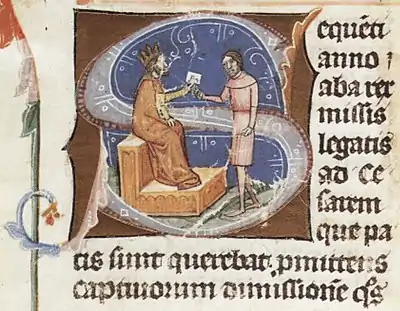 equēti
anno
aba rex
missis
legatis
ad Ce
sarem
que pa
cis sunt querebat, pmittens
captiuorum dimissionē qͦs